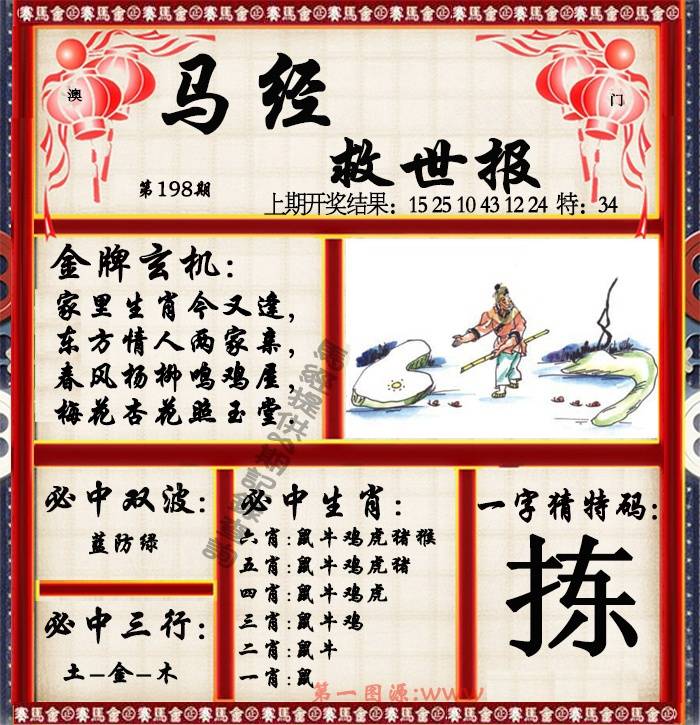 賽馬會 賽馬會 賽馬會 賽馬會 賽馬會 賽馬會 賽馬會
澳
门
马经
救世报
第198期
上期开奖结果：15 25 10 43 12 24 特：34
金牌玄机：
家里生肖今又逢，
东方情人两家亲，
春风杨柳鸣鸡屋，
梅花杏花照玉堂．
必中双波：
蓝防绿
必中三行：
土-金-木
必中生肖：
六肖：鼠牛鸡虎猪猴
五肖：鼠牛鸡虎猪
四肖：鼠牛鸡虎
三肖：鼠牛鸡
二肖：鼠牛
一肖：鼠
一字猜特码：
拣
第一图源：www